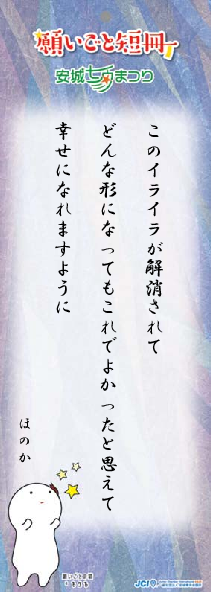 願いごと短冊
安城七夕まつり
このイライラが解消されて
どんな形になってもこれでよかったと思えて
幸せになれますように
ほのか
願いごと短冊
JCI